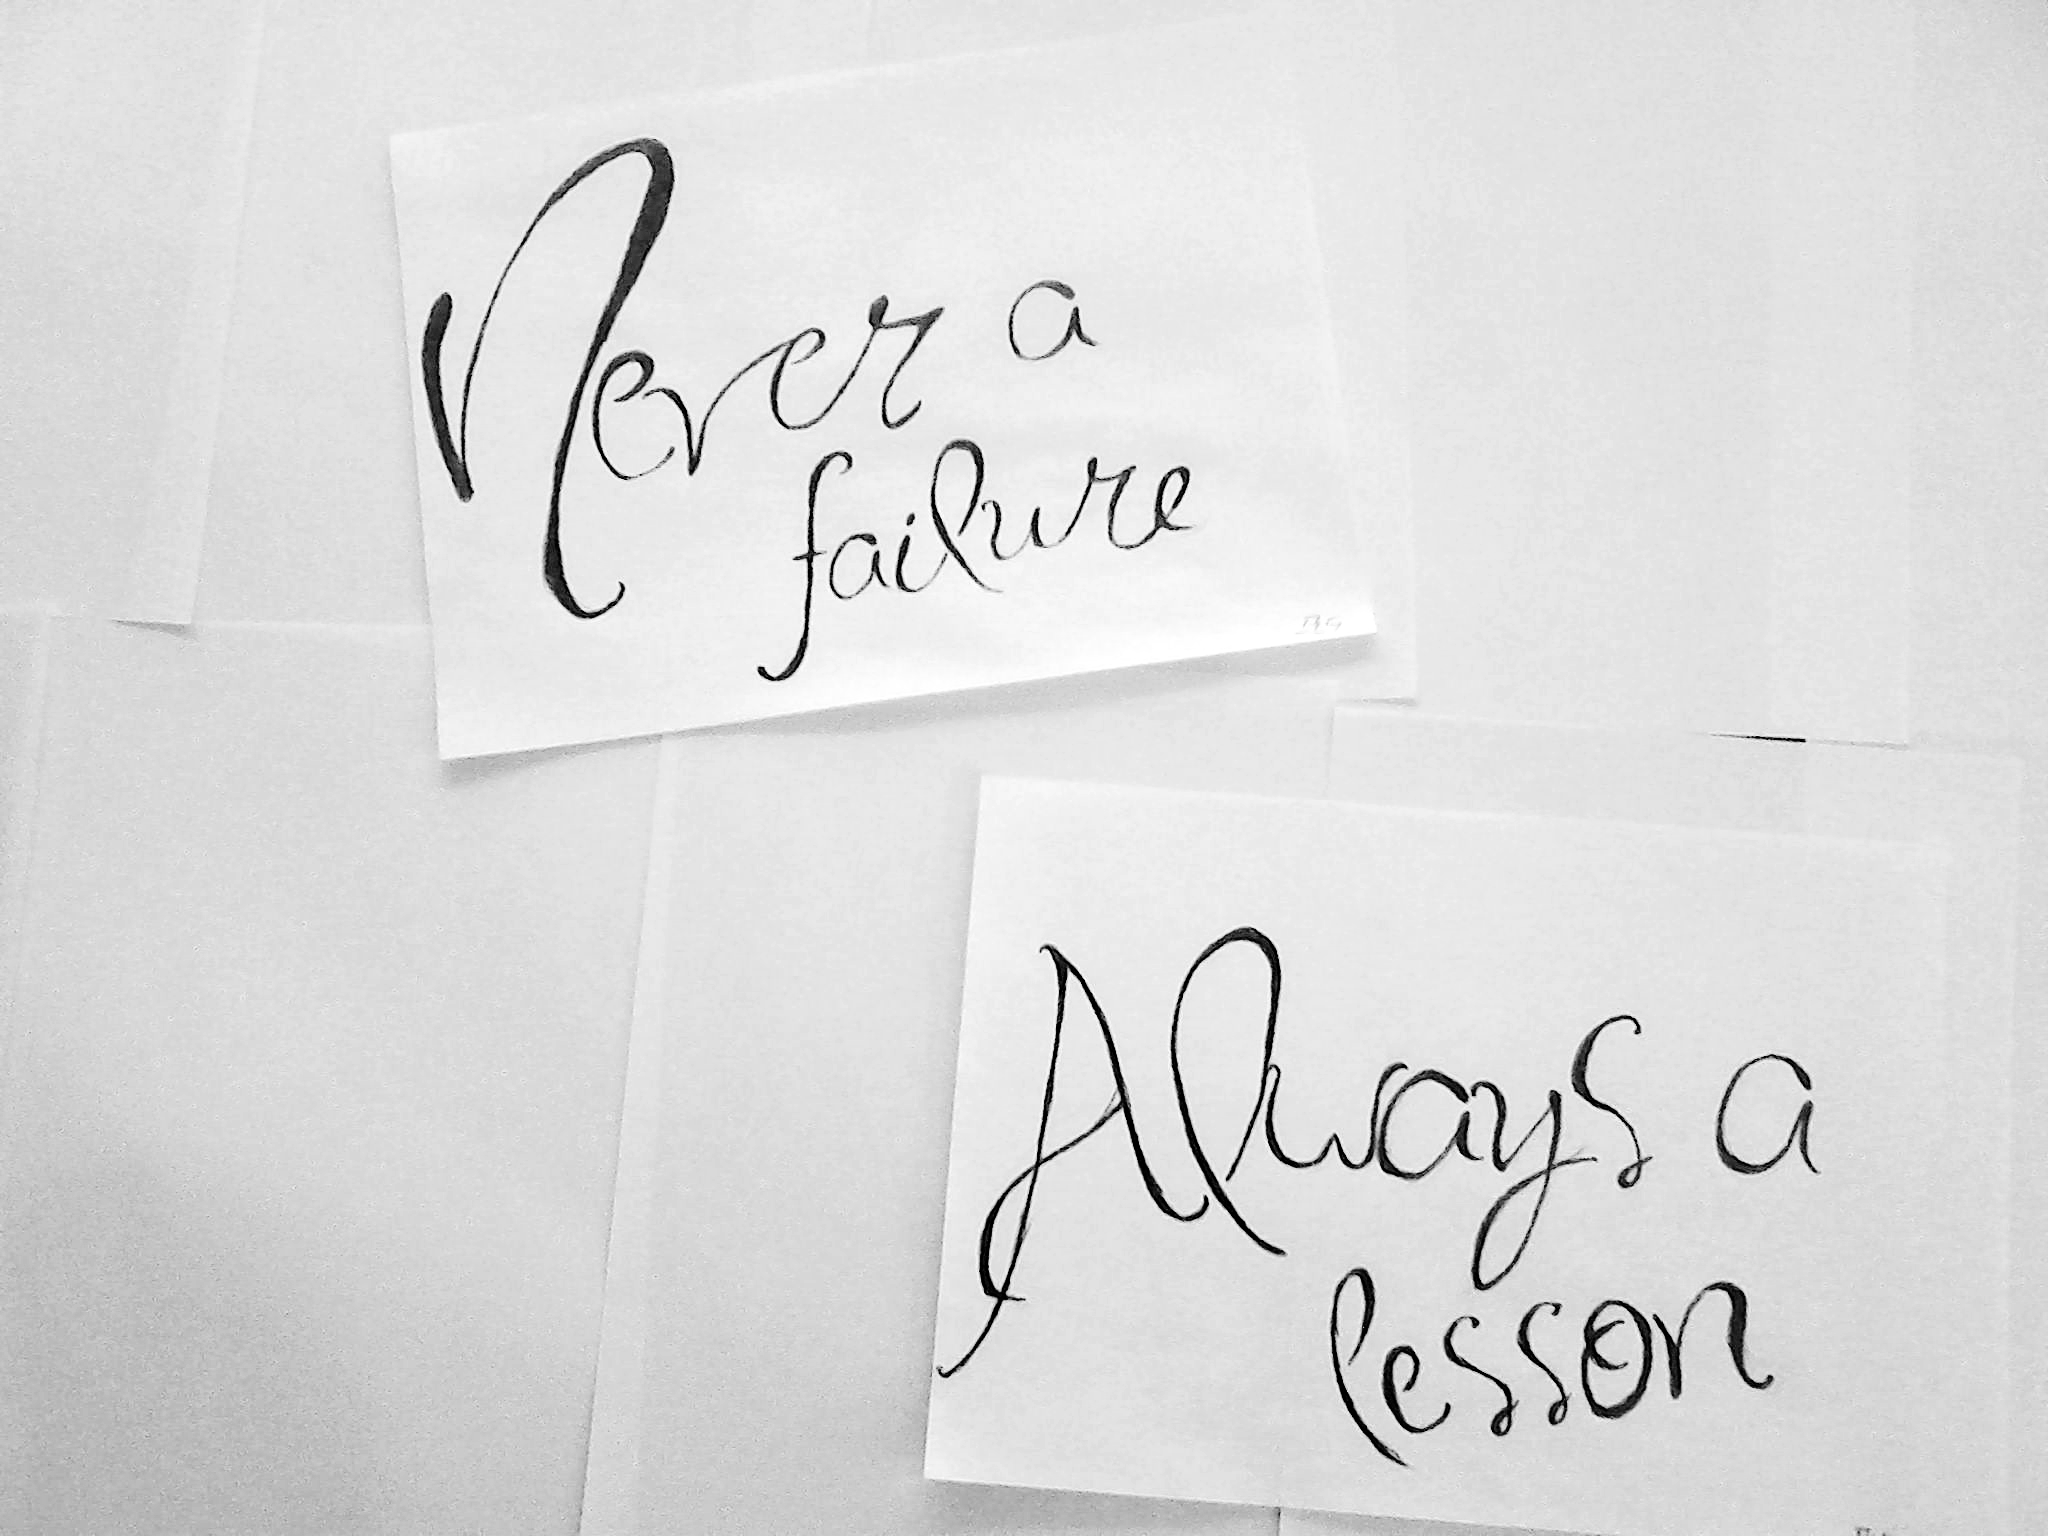 Never a
failure
Always a
lesson